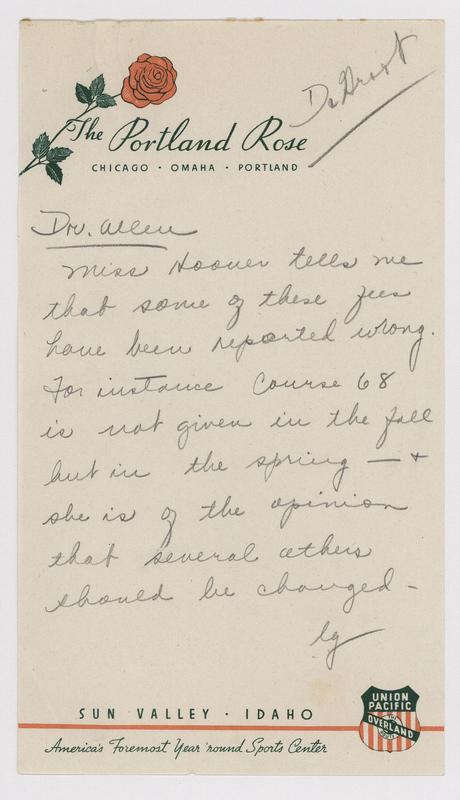 Dr Grout
The Portland Rose
CHICAGO · OMAHA · PORTLAND
Dr. Allen
Miss Hoover tells me
that some of these fees
have been reported wrong.
For instance Course 68
is not given in the fall
but in the spring — +
she is of the opinion
that several others
should be changed –
lg
SUN VALLEY · IDAHO
America's Foremost Year 'round Sports Center
UNION
PACIFIC
OVERLAND